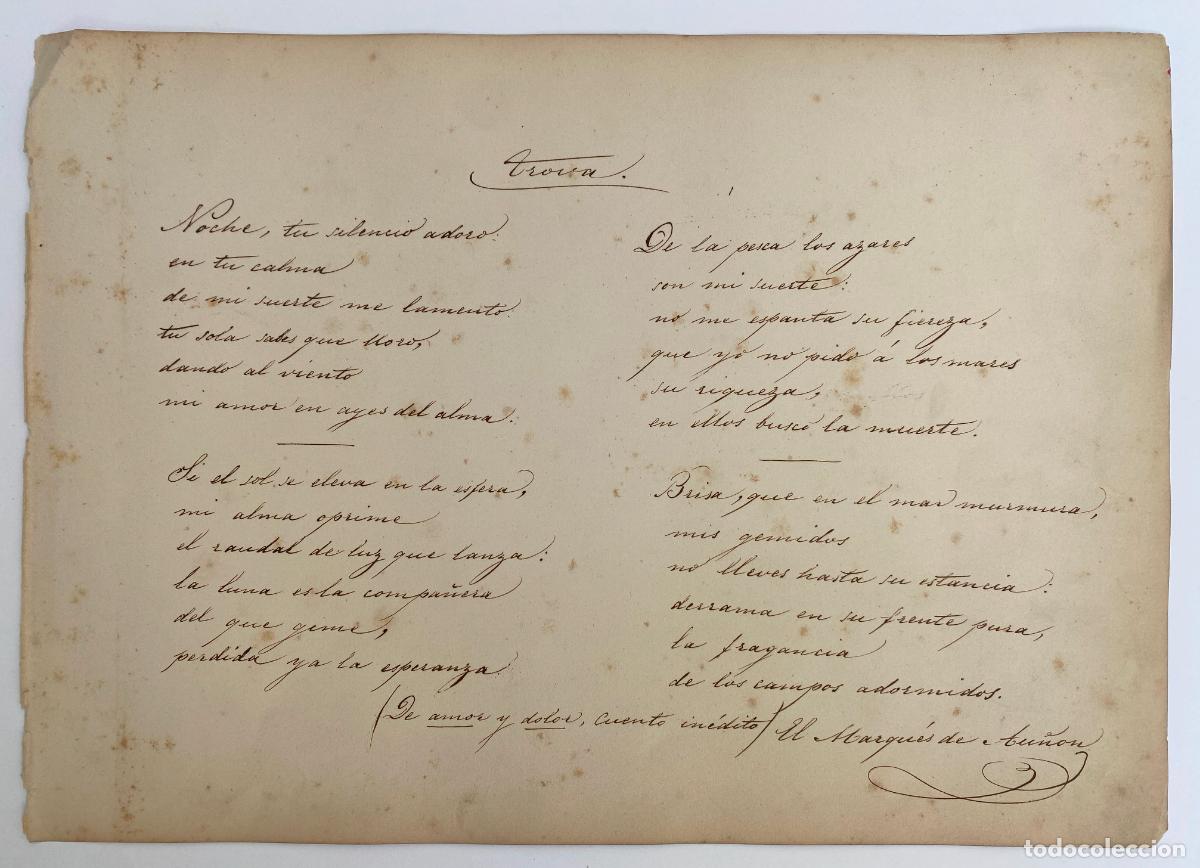 Trova.
Noche, tu silencio adoro:
en tu calma
de mi suerte me lamento:
tu sola sabes que lloro,
dando al viento
mi amor en ayes del alma.
Si el sol se eleva en la esfera,
mi alma oprime
el raudal de luz que lanza:
la luna es la compañera
del que gime,
perdida ya la esperanza.
De la pesca los azares
son mi suerte:
no me espanta su fiereza,
que yo no pido á los mares
su riqueza,
en ellos buscó la muerte.
Brisa, que en el mar murmura,
mis gemidos
no lleves hasta su estancia:
derrama en su frente pura,
la fragancia
de los campos adormidos.
(De amor y dolor, cuento inédito)
El Marqués de Auñon
todocoleccion